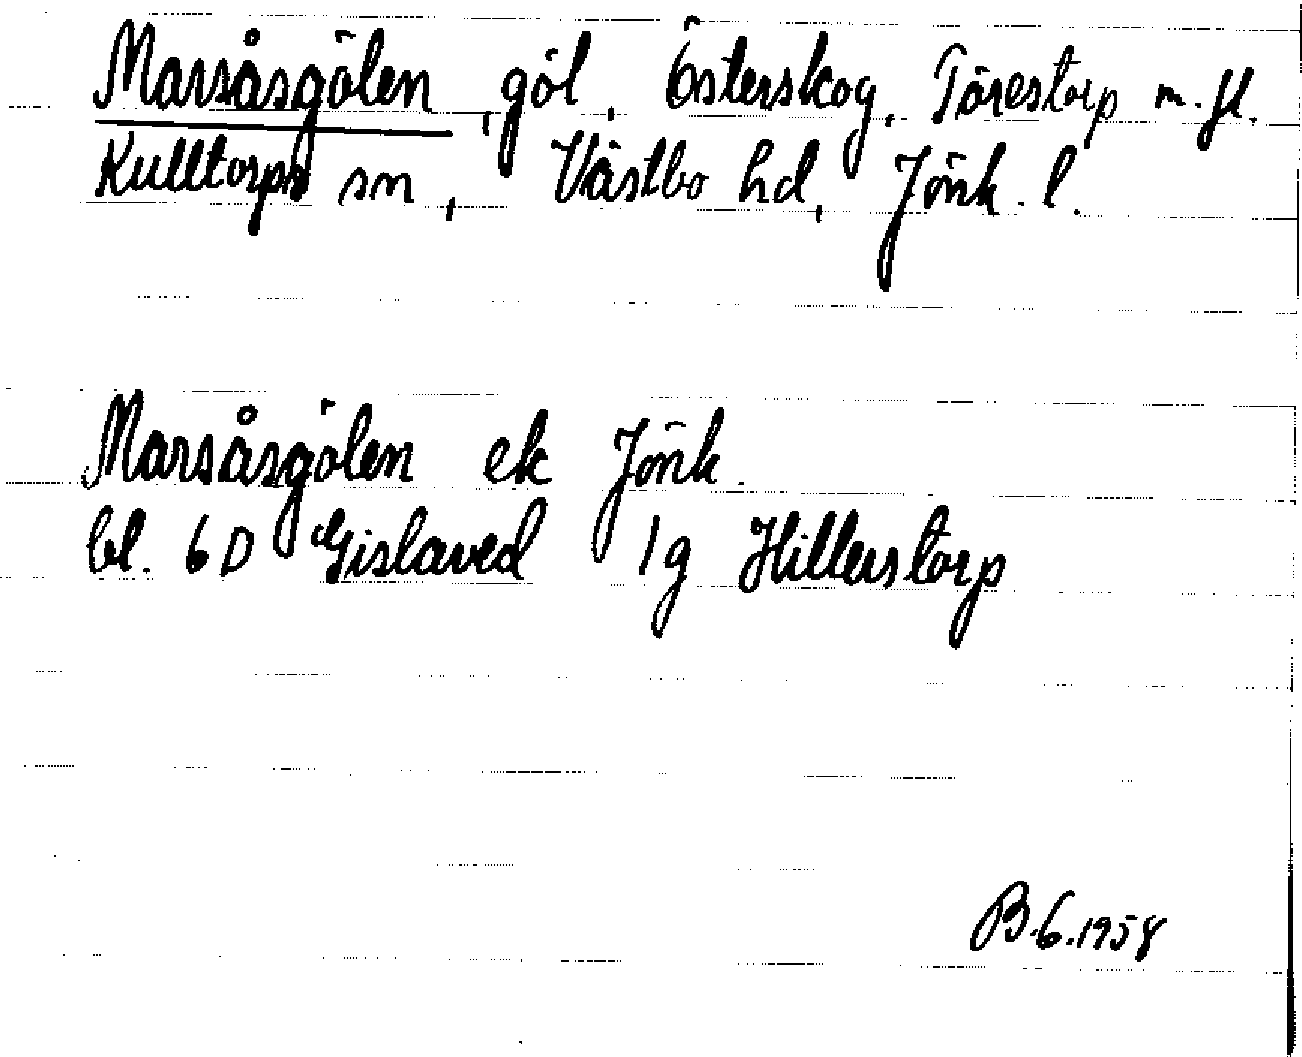 Marsåsgölen, göl, Österskog, Törestorp m. fl.
Kulltorps sn, Västbo hd, Jönk. l.
Marsåsgölen ek Jönk.
bl. 6D Gislaved 1g Hillerstorp
B.6.1958